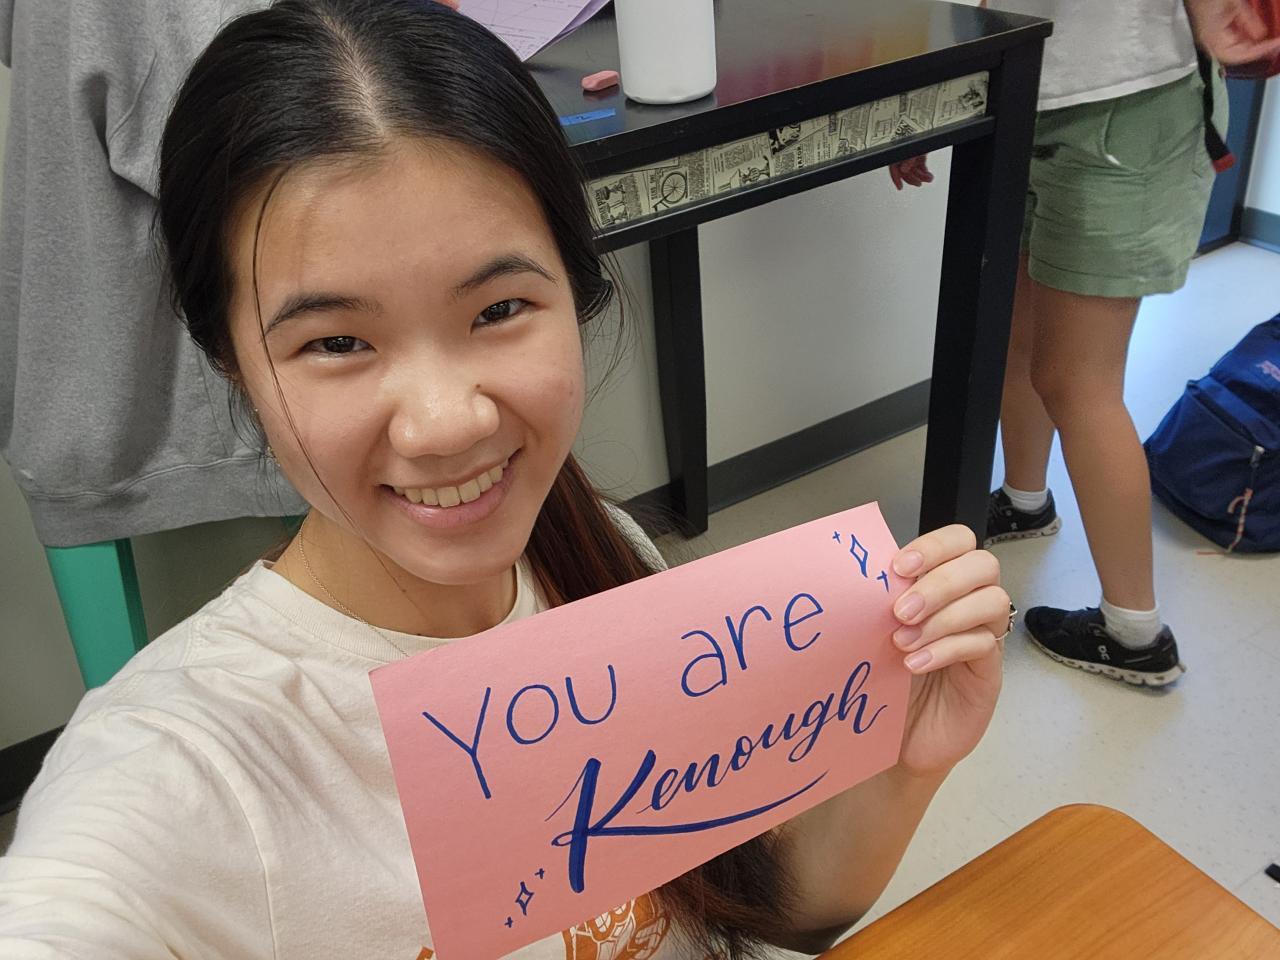 You are
Kenough